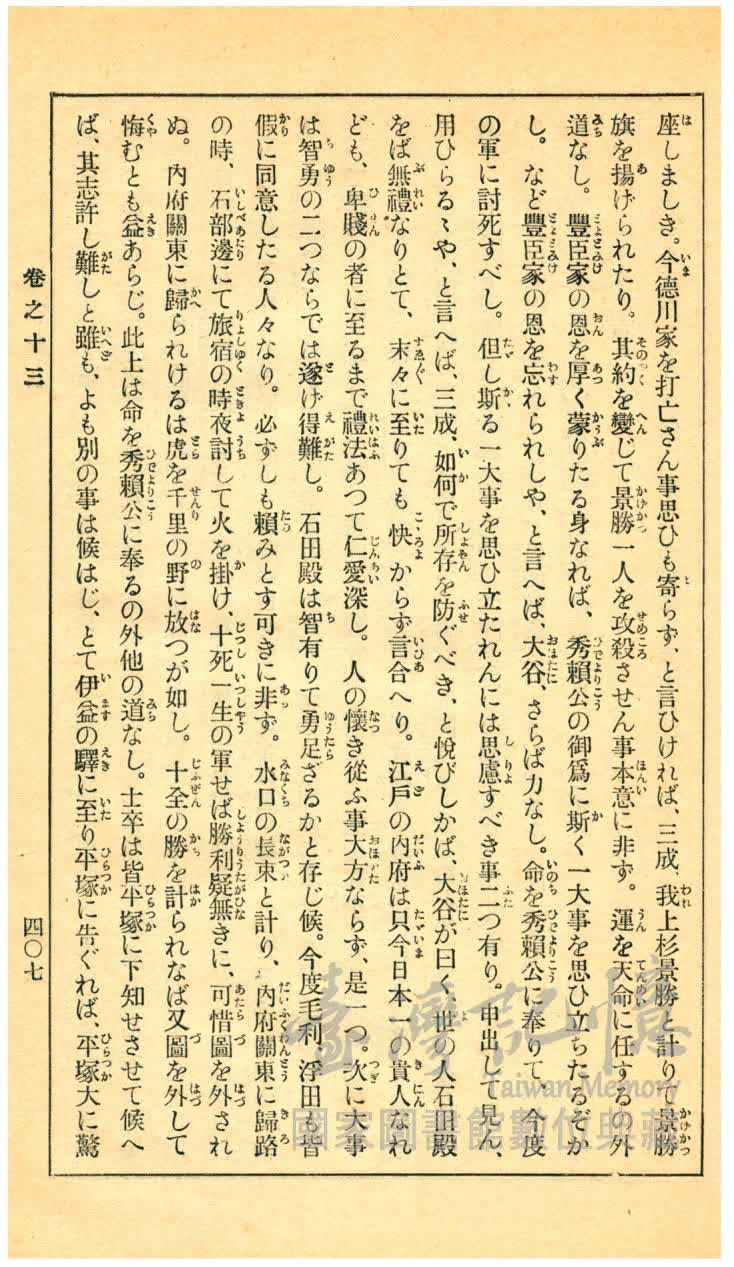 座しましき。今德川家を打亡さん事思ひも寄らず、と言ひければ、三成、我上杉景勝と計りて景勝
旗を揚げられたり。其約を變じて景勝一人を攻殺させん事本意に非ず。運を天命に任するの外
道なし。豐臣家の恩を厚く蒙りたる身なれば、秀賴公の御爲に斯く一大事を思ひ立ちたるぞか
し。など豐臣家の恩を忘れられしや、と言へば、大谷、さらば力なし。命を秀賴公に奉りて、今度
の軍に討死すべし。但し斯る一大事を思ひ立たれんには思慮すべき事二つ有り。申出して見ん、
用ひらるゝや、と言へば、三成、如何で所存を防ぐべき、と悅びしかば、大谷が曰く、世の人石田殿
をば無禮なりとて、末々に至りても快からず言合へり。江戶の內府は只今日本一の貴人なれ
ども、卑賤の者に至るまで禮法あつて仁愛深し。人の懷き從ふ事大方ならず、是一つ。次に大事
は智勇の二つならでは遂げ得難し。石田殿は智有りて勇足ざるかと存じ候。今度毛利、浮田も皆
假に同意したる人々なり。必ずしも賴みとす可きに非ず。水口の長束と計り、內府關東に歸路
の時、石部邊にて旅宿の時夜討して火を掛け、十死一生の軍せば勝利疑無きに、可惜圖を外され
ぬ。內府關東に歸られけるは虎を千里の野に放つが如し。十全の勝を計られなば又圖を外して
悔むとも益あらじ。此上は命を秀賴公に奉るの外他の道なし。士卒は皆平塚に下知せさせて候へ
ば、其志許し難しと雖も、よも別の事は候はじ、とて伊益の驛に至り平塚に告ぐれば、平塚大に驚
卷之十三
四〇七
臺灣記憶
Taiwan Memory
國家圖書館數位典藏